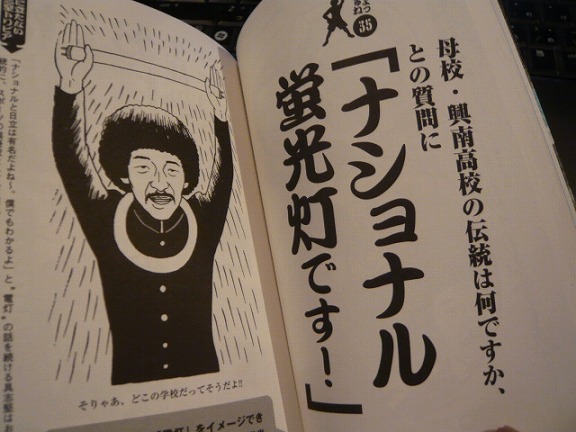 35
母校・興南高校の伝統は何ですか、
との質問に
「ナショナル
蛍光灯です！」
そりゃあ、どこの学校だってそうだよ!!
「ナショナルと日立は有名だよね～。僕でもわかるよ」と〝電灯〟の話を続ける具志堅はお